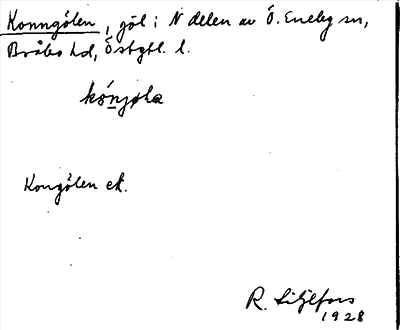 Konngölen, göl i N delen av Ö. Eneby sn,
Bråbo hd, Östgtl. l.
kónjøla
Kongölen ek.
R. Liljefors
1928